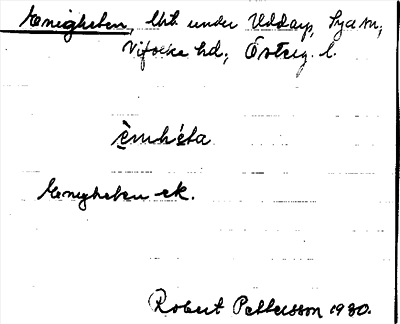 Enigheten, lht under Uddarp, Hya sn,
Vifolka hd, Österg. l.
èmhéta
Enigheten ek.
Robert Pettersson 1930.